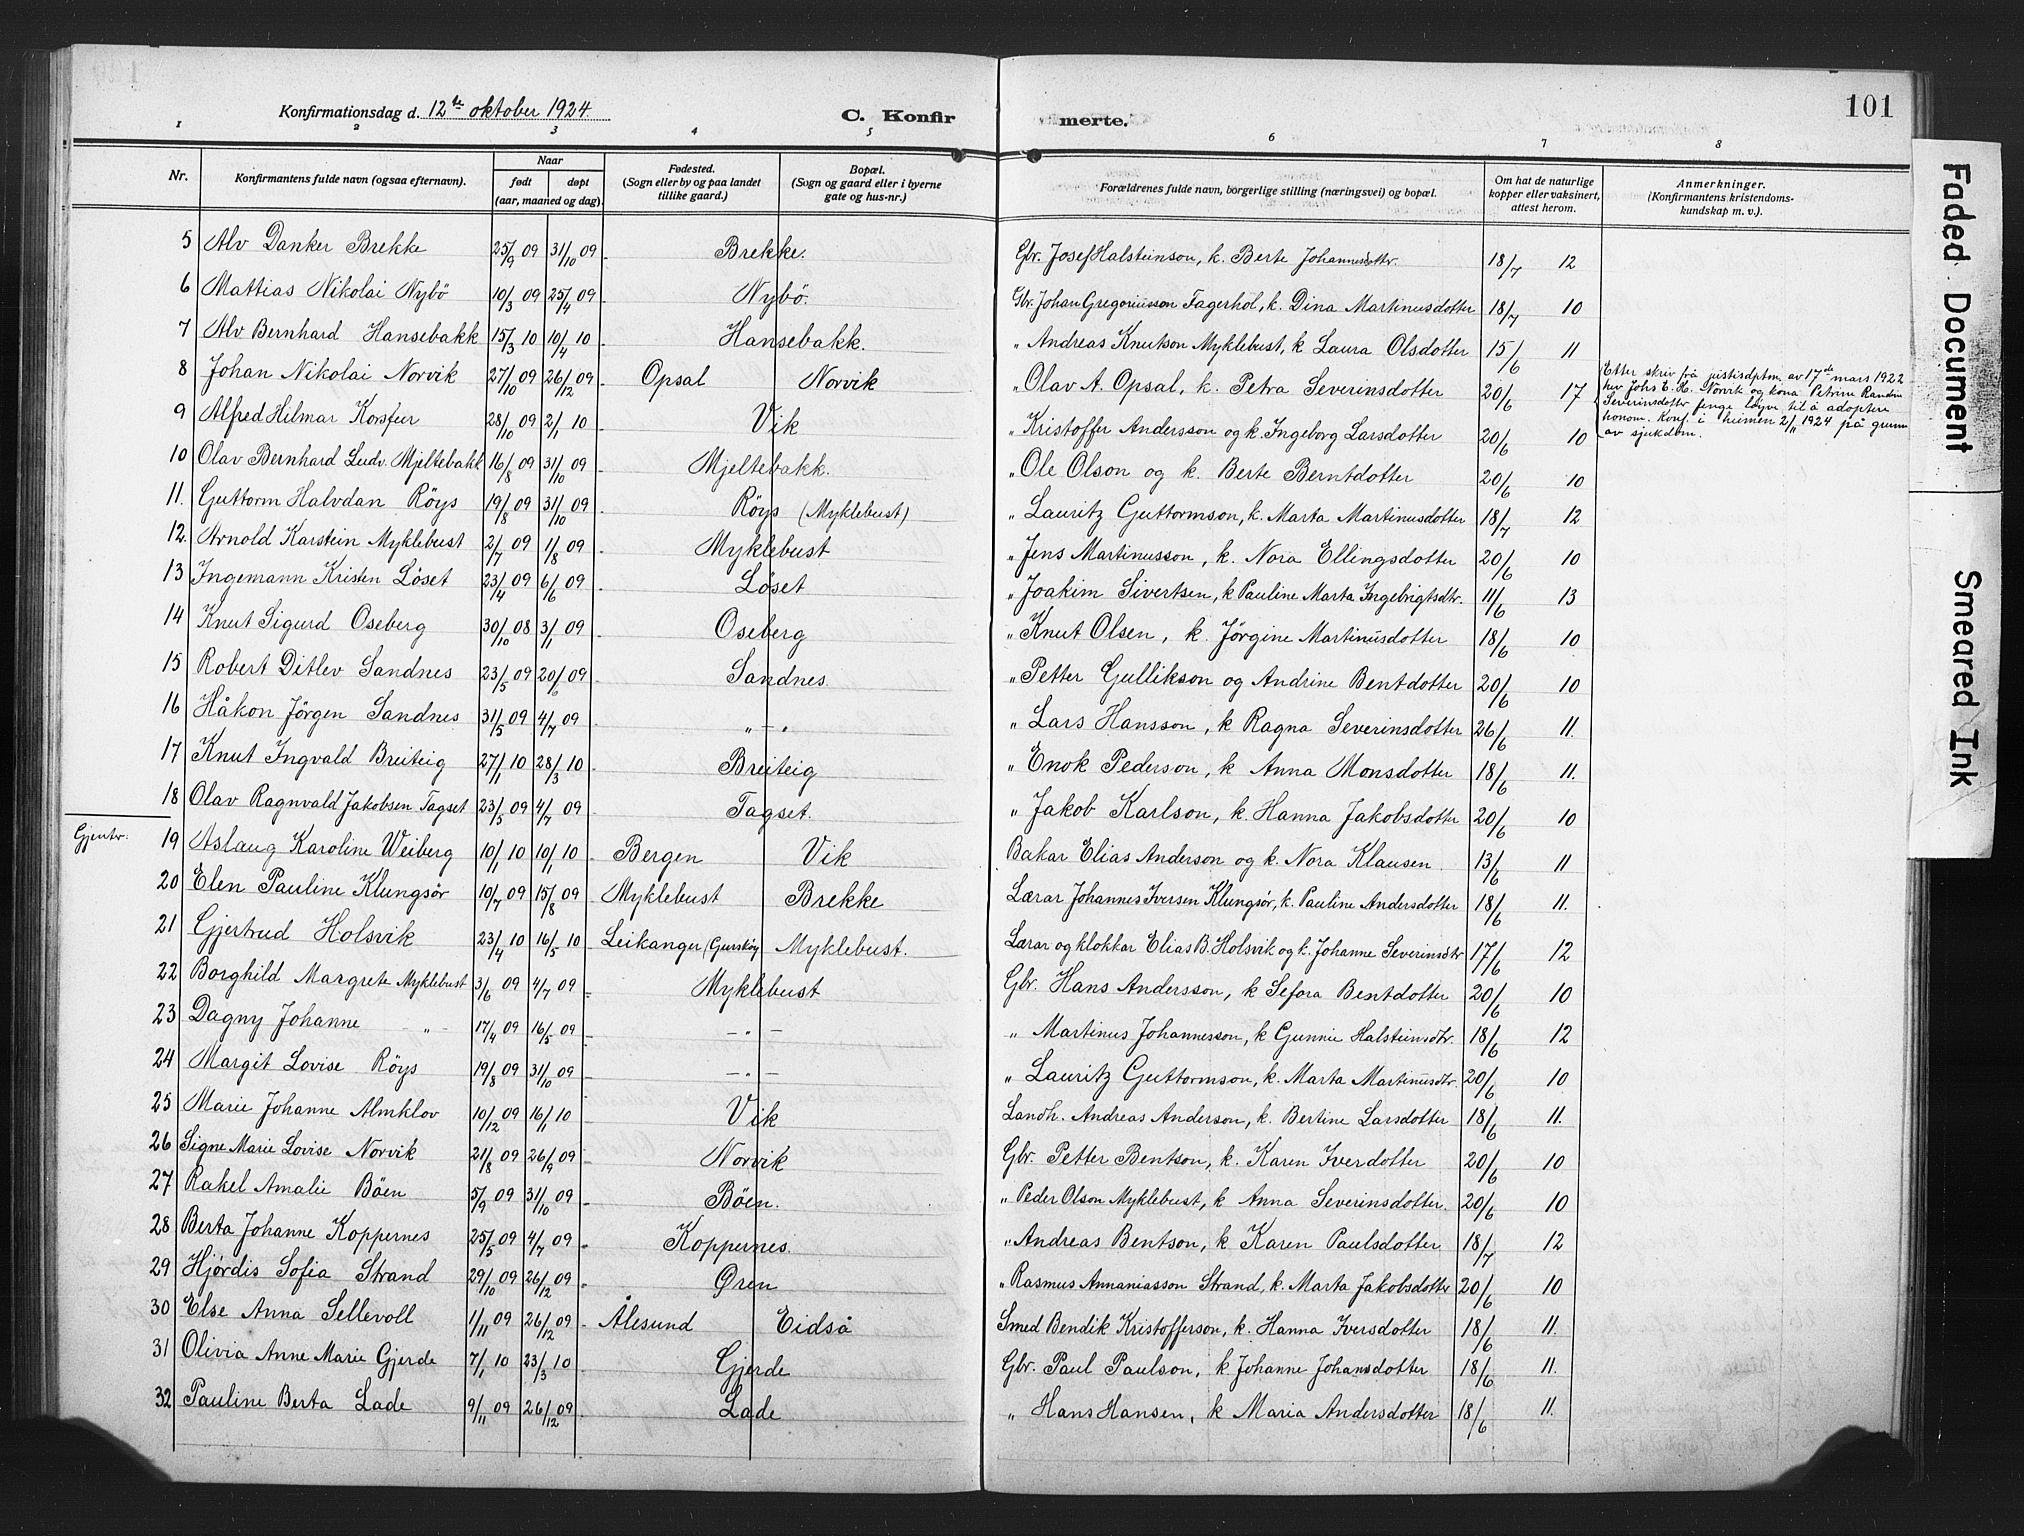 Konfirmationsdag d. 12te oktober 1924. C. Konfirmerte. 101
1 2 3 4 5 6 7 8
Nr. Konfirmantens fulde navn (ogsaa efternavn). Naar født døpt (aar, maaned og dag). Fødested. (Sogn eller by og paa landet tillike gaard.) Bopæl. (Sogn og gaard eller i byerne gate og hus-nr.) Forældrenes fulde navn, borgerlige stilling (næringsvei) og bopæl. Om hat de naturlige kopper eller vaksinert, attest herom. Anmerkninger. (Konfirmantens kristendomskundskap m. v.).
5 Alv Danker Brekke 25/9 09 31/10 09 Brekke. Gbr. Josef Halsteinson, k. Berte Johannesdottr. 18/7 12
6 Mattias Nikolai Nybö 10/3 09 25/4 09 Nybö. Gbr. Johan Gregoriusson Fagerhol, k. Dina Martinusdotter 18/7 10
7 Alv Bernhard Hansebakk 15/3 10 10/4 10 Hansebakk. " Andreas Knutson Myklebust, k Laura Olsdotter 15/6 11
8 Johan Nikolai Norvik 27/10 09 26/12 09 Opsal Norvik " Olav A. Opsal, k. Petra Severinsdotter 20/6 17 Etter skriv frå justisdptm. av 17de mars 1922 hev Johs E. H. Norvik og kona Petrine Randine Severinsdotter fenge löyve til å adoptere honom. Konf. i heimen 2/11 1924 på grunn av sjukdom.
9 Alfred Hilmar Korsfur 28/10 09 2/1 10 Vik " Kristoffer Andersson og k. Ingeborg Larsdotter 20/6 10
10 Olav Bernhard Ludv. Mjeltebakk 16/8 09 31/10 09 Mjeltebakk. " Ole Olson og k. Berte Berntdotter 20/6 10
11. Guttorm Halvdan Röys 19/8 09 31/10 09 Röys (Myklebust) " Lauritz Guttormson, k. Marta Martinusdotter 18/7 12
12. Arnold Karstein Myklebust 2/7 09 1/8 09 Myklebust " Jens Martinusson, k. Nora Ellingsdotter 20/6 10
13 Ingemann Kristen Löset 23/4 09 6/6 09 Löset " Joakim Sivertsen, k Pauline Marta Ingebrigtsdtr. 11/6 13
14 Knut Sigurd Oseberg 30/10 08 3/1 09 Oseberg " Knut Olsen, k. Jörgine Martinusdotter 18/6 10
15 Robert Ditlev Sandnes 23/5 09 20/6 09 Sandnes. " Petter Gullikson og Andrine Bentdotter 20/6 10
16 Håkon Jörgen Sandnes 31/5 09 4/7 09 " – " " Lars Hansson, k Ragna Severinsdotter 26/6 11.
17 Knut Ingvald Breiteig 27/1 10 28/3 10 Breiteig " Enok Pederson, k Anna Monsdotter 18/6 11.
18 Olav Ragnvald Jakobsen Tagset 23/5 09 4/7 09 Tagset. " Jakob Karlson, k. Hanna Jakobsdotter 20/6 10
Gjentr. 19 Aslaug Karoline Weiberg 10/1 10 10/1 10 Bergen Vik Bakar Elias Anderson og k. Nora Klausen. 13/6 11
20 Elen Pauline Klungsör 10/7 09 15/8 09 Myklebust Brekke Lærar Johannes Iversen Klungsör, k. Pauline Andersdotter 18/6 11.
21 Gjertrud Holsvik 23/4 10 16/5 10 Leikanger (Gurskøy Myklebust. Lærar og klokkar Elias B. Holsvik og k. Johanne Severinsdtr 17/6 12
22 Borghild Margrete Myklebust 3/6 09 4/7 09 Myklebust Gbr. Hans Andersson, k Sefora Bentdotter 20/6 10
23 Dagny Johanne – " – 17/4 09 16/5 09 – " – " Martinus Johannesson, k Gunnie Halsteinsdtr. 18/6 12
24 Margit Lovise Röys 19/8 09 31/10 09 – " – " Lauritz Guttormson, k. Marta Martinusdtr. 20/6 10
25 Marie Johanne Almklov 10/12 09 16/1 10 Vik Landh. Andreas Anderson, k. Bertine Larsdotter 18/6 11.
26 Signe Marie Lovise Norvik 21/8 09 26/9 09 Norvik Gbr. Petter Bentson, k. Karen Iverdotter 20/6 10
27 Rakel Amalie Böen 5/9 09 31/10 09 Böen. " Peder Olson Myklebust, k Anna Severinsdotter. 20/6 10
28 Berta Johanne Koppernes 25/5 09 4/7 09 Koppernes. " Andreas Bentson, k Karen Paulsdotter 18/7 12
29 Hjørdis Sofia Strand 29/10 09 26/12 09 Øren " Rasmus Annaniasson Strand, k. Marta Jakobsdotter 20/6 10
30 Else Anna Sellevoll 1/11 09 26/12 09 Ålesund Eidså Smed Bendik Kristofferson, k. Hanna Iversdotter 18/6 11.
31 Olivia Anne Marie Gjerde 7/1 10 23/3 10 Gjerde Gbr. Paul Paulson, k Johanne Johansdotter 18/6 11.
32 Pauline Berta Lade 9/11 09 26/12 09 Lade " Hans Hansen, k Maria Andersdotter 18/6 11.
Faded Document
Smeared Ink